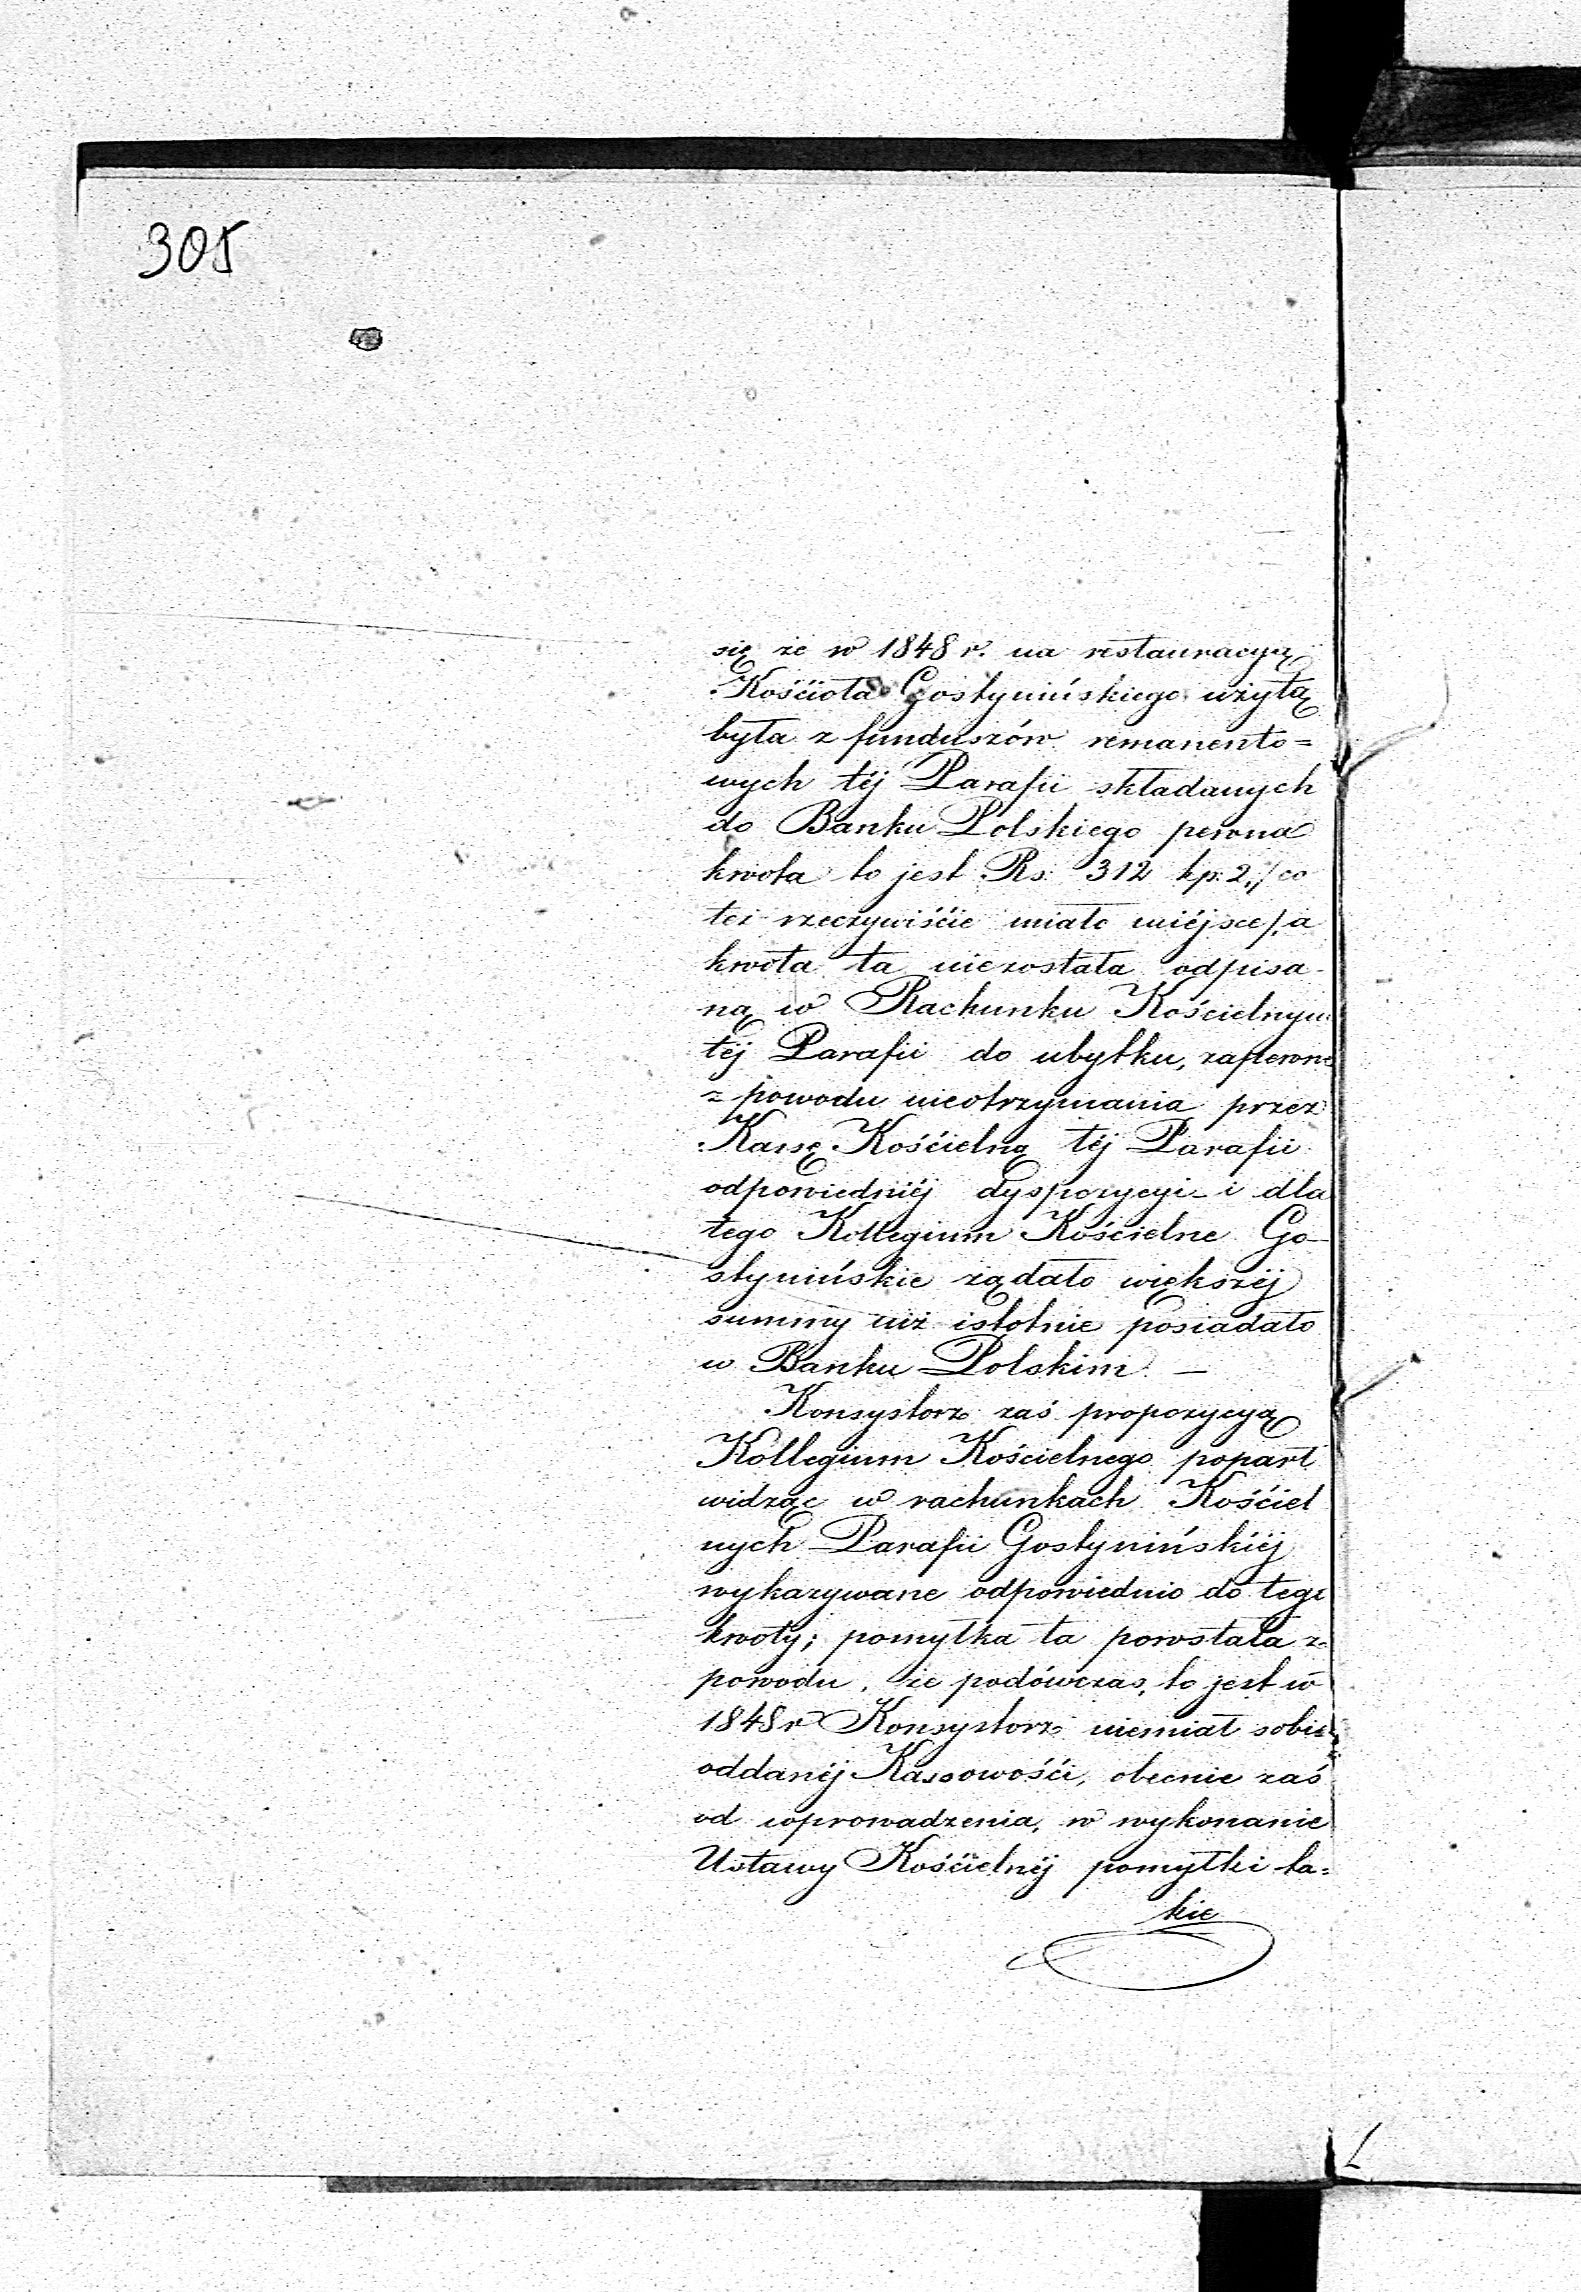 305
się że w 1848 r. na restauracyą
Kościoła Gostynińskiego użytą
była z funduszów remanento=
wych téj Parafii składanych
do Banku Polskiego pewna
kwota to jest Rs. 312 kp. 2, /co
też rzeczywiście miało miéjsce/, a
kwota ta niezostała odpisa-
ną w Rachunku Kościelnym
téj Parafii do ubytku, zapewne
z powodu nieotrzymania przez
Kassę Kościelną téj Parafii
odpowiedniéj dyspozycyi i dla
tego Kollegium Kościelne Go-
stynińskie żądało większéj
summy niż istotnie posiadało
w Banku Polskim. —
Konsystorz zaś propozycyą
Kollegium Kościelnego poparł
widząc w rachunkach Kościel
nych Parafii Gostynińskiéj
wykazywane odpowiednio do tego
kwoty; pomyłka ta powstała z
powodu, że podówczas, to jest w
1848 r Konsystorz niemiał sobie
oddanéj Kassowości, obecnie zaś
od wprowadzenia, w wykonanie
Ustawy Kościelnéj pomyłki ta=
kie